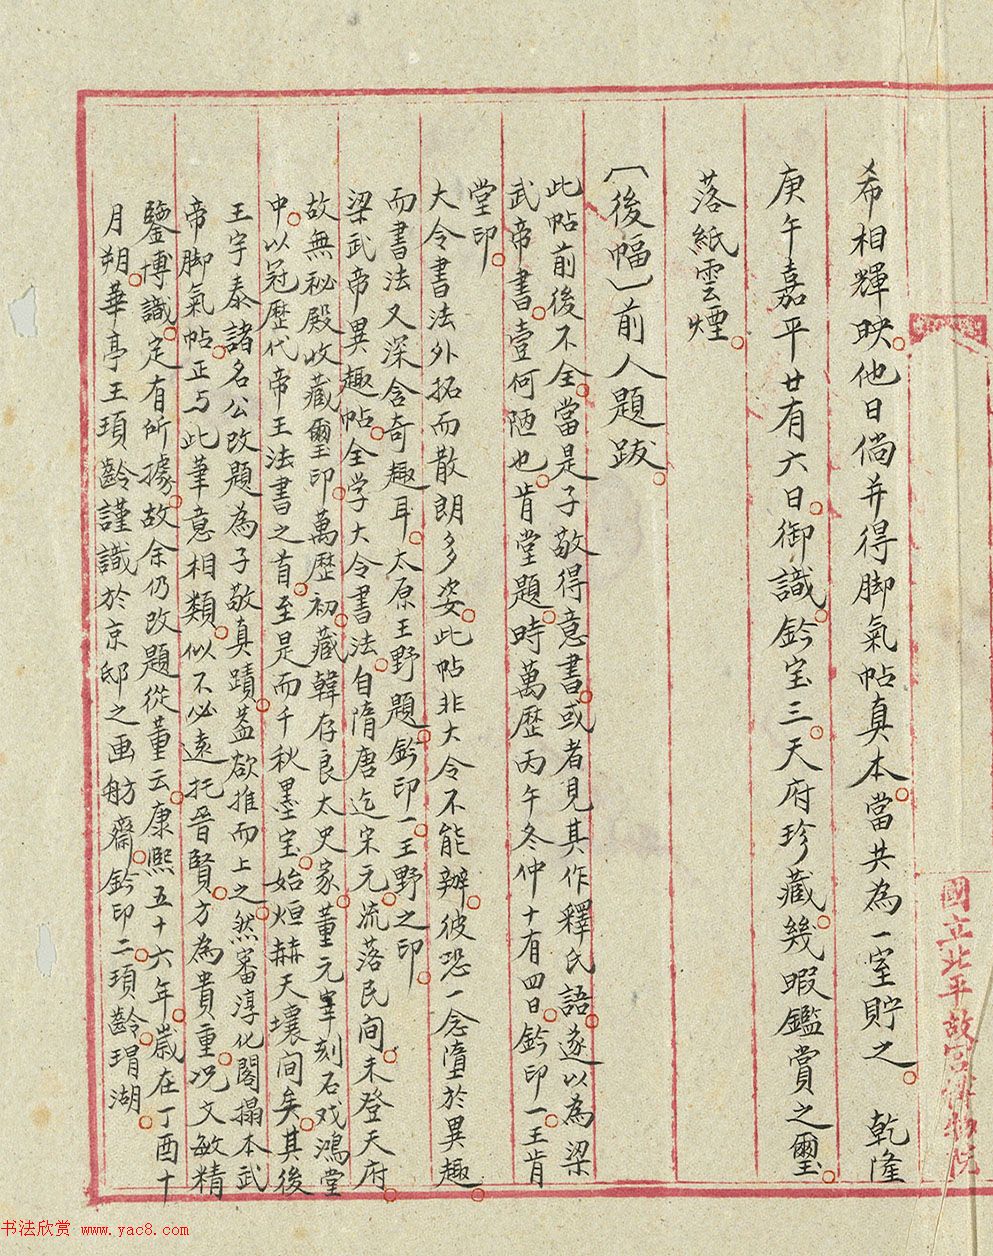 希相輝映。他日倘并得脚氣帖真本。當共為一室貯之。 乾隆
庚午嘉平廿有六日。御識。鈐宝三。天府珍藏。幾暇鑑賞之璽。
落紙雲煙。
〔後幅〕前人題跋。
此帖前後不全。當是子敬得意書。或者見其作釋氏語。遂以為梁
武帝書。壹何陋也。肯堂題。時萬歷丙午冬仲十有四日。鈐印一。王肯
堂印。
大令書法外拓而散朗多姿。此帖非大令不能辦。彼恐一念墮於異趣。
而書法又深含奇趣耳。太原王野題。鈐印一。王野之印。
梁武帝異趣帖。全学大令書法。自隋唐迄宋元。流落民間。未登天府。
故無秘殿收藏璽印。萬歷初。藏韓存良太史家。董元宰刻石戏鴻堂
中。以冠歷代帝王法書之首。至是而千秋墨宝。始烜赫天壤間矣。其後
王宇泰諸名公改題為子敬真蹟。蓋欲推而上之。然審淳化閣搨本武
帝脚氣帖。正与此筆意相類。似不必遠托晉賢。方為貴重。况文敏精
鑒博識。定有所據。故余仍改題從董云。康熙五十六年。歲在丁酉十
月朔。華亭王頊齡謹識於京邸之画舫齋。鈐印二。頊齡。瑁湖。
國立北平故宮博物院
书法欣赏 www.yac8.com